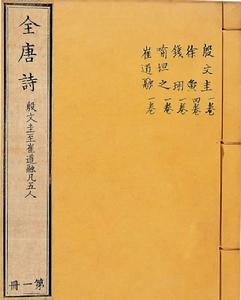 殷文圭一卷
徐夤四卷
錢珝一卷
喻坦之一卷
崔道融一卷
全唐詩
殷文圭至崔道融凡五人
第一冊